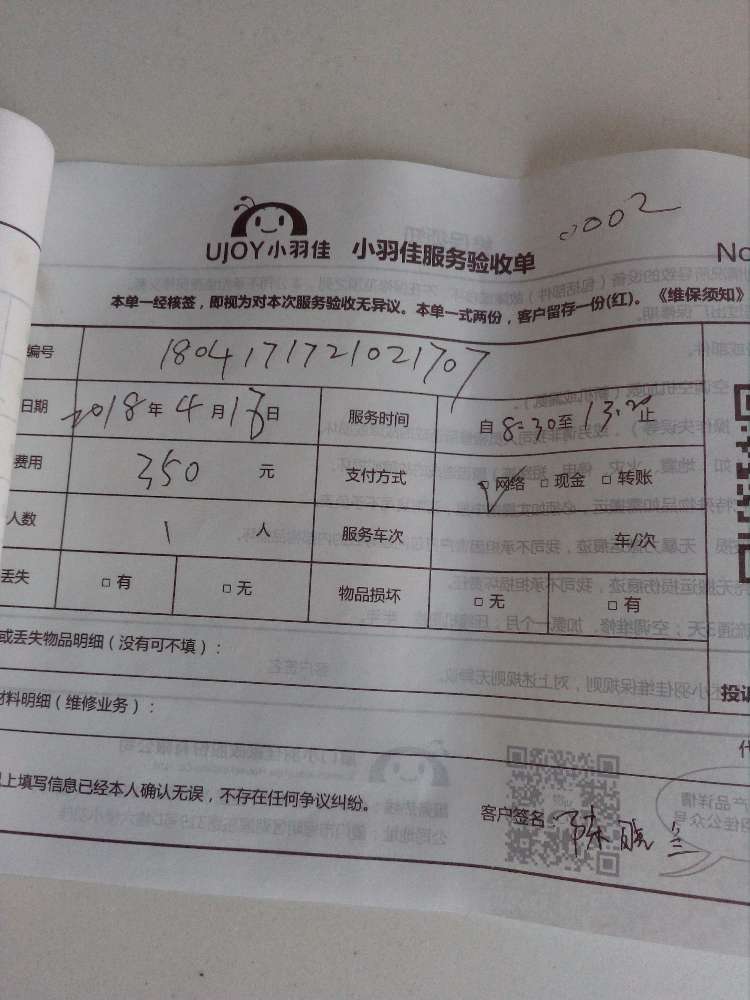 0002
UJOY小羽佳 小羽佳服务验收单 No
本单一经核签，即视为对本次服务验收无异议。本单一式两份，客户留存一份(红)。《维保须知》
编号 1804171721021707
日期 2018年4月18日 服务时间 自8:30至13:20止
费用 350元 支付方式 □网络 □现金 □转账
人数 1人 服务车次 车/次
丢失 □有 □无 物品损坏 □无 □有
或丢失物品明细（没有可不填）：
材料明细（维修业务）：
投诉
上填写信息已经本人确认无误，不存在任何争议纠纷。
客户签名：陈晓兰